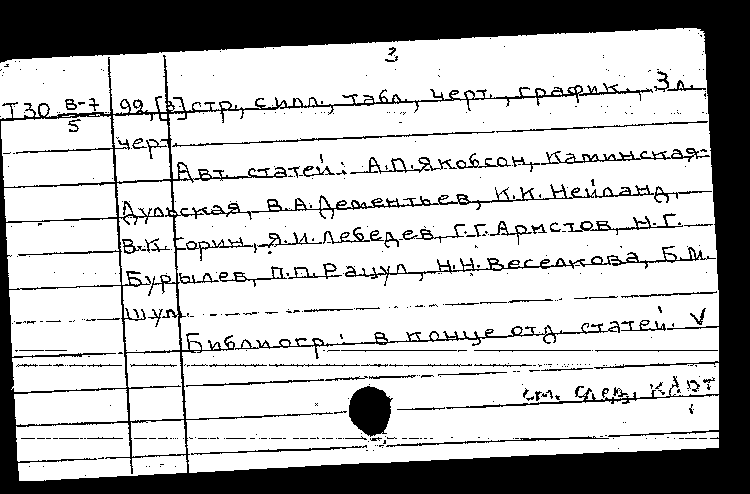 3
Т30 В-7/5 99,[3]стр., с илл., табл., черт., график., 3 л.
черт.
Авт. статей: А.П.Якобсон, Каминская-
Дульская, В.А.Дементьев, К.К.Нейланд,
В.К.Горин, Я.И.Лебедев, Г.Г.Аристов, Н.Г.
Бурылев, П.П.Рацул, Н.Н.Веселкова, Б.М.
Шуп.
Библиогр.: в конце отд. статей. V
см. след. карт